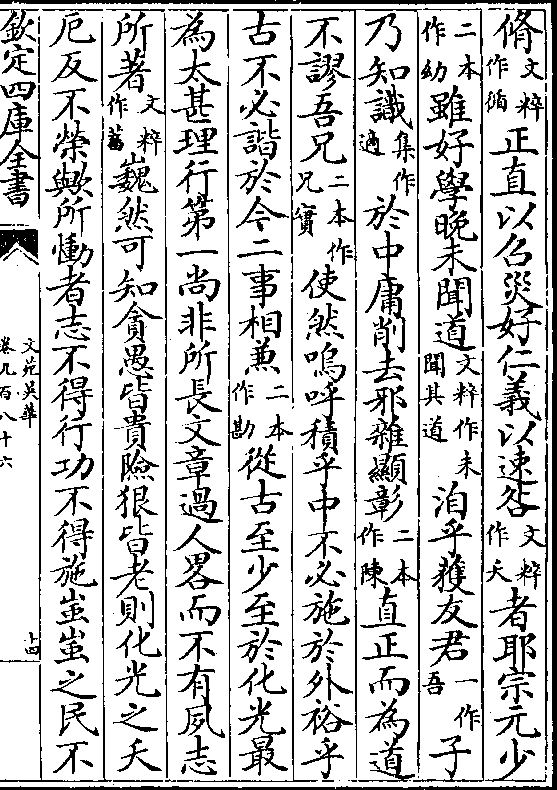 脩文粹作循正直以召災好仁義以速咎文粹作夭者耶宗元少
二本作幼雖好學晚未聞道文粹作未聞其道洎乎獲友君一作吾子
乃知識集作適於中庸削去邪雜顯彰二本作陳直正而為道
不謬吾兄二本作兄實使然嗚呼積乎中不必施於外裕乎
古不必諧於今二事相兼二本作勘從古至少至於化光最
為太甚理行第一尚非所長文章過人畧而不有夙志
所著文粹作蓄巍然可知貪愚皆貴險狠皆老則化光之夭
厄反不榮歟所慟者志不得行功不得施蚩蚩之民不
欽定四庫全書
文苑英華
卷九百八十六
十四